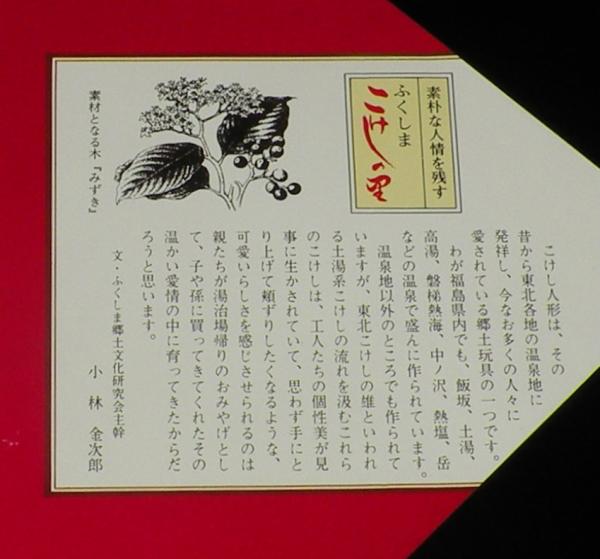 素朴な人情を残す
ふくしま
こけしの里
こけし人形は、その
昔から東北各地の温泉地に
発祥し、今なお多くの人々に
愛されている郷土玩具の一つです。
わが福島県内でも、飯坂、土湯、
高湯、磐梯熱海、中ノ沢、熱塩、岳
などの温泉で盛んに作られています。
温泉地以外のところでも作られて
いますが、東北こけしの雄といわれ
る土湯系こけしの流れを汲むこれら
のこけしは、工人たちの個性美が見
事に生かされていて、思わず手にと
り上げて頬ずりしたくなるような、
可愛いらしさを感じさせられるのは
親たちが湯治場帰りのおみやげとし
て、子や孫に買ってきてくれたその
温かい愛情の中に育ってきたからだ
ろうと思います。
文・ふくしま郷土文化研究会主幹
小林金次郎
素材となる木『みずき』